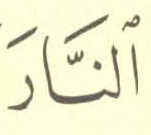 ٱلنَّارَ